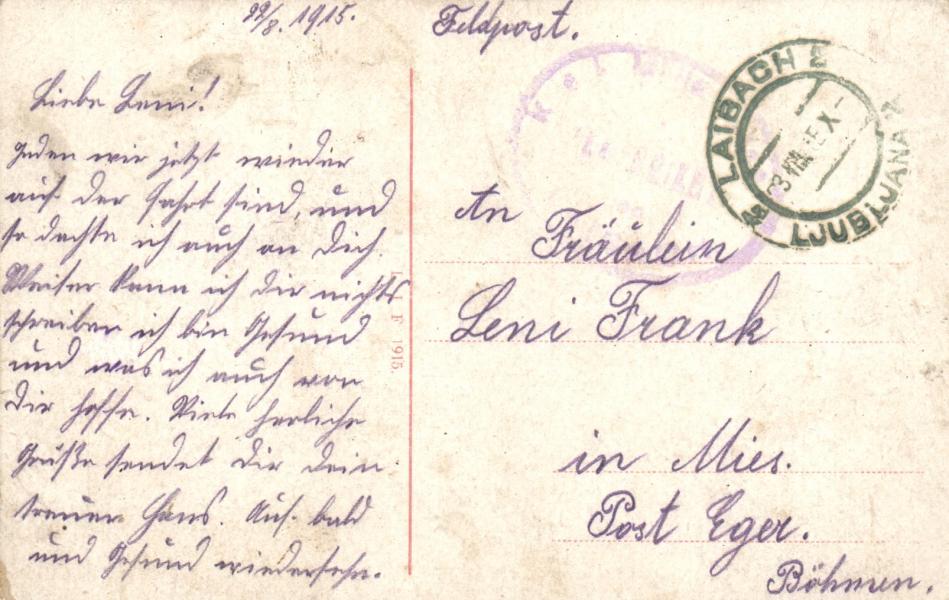 22/8. 1915.
Feldpost.
Liebe Leni!
Indem wir jetzt wieder
auf der Fahrt sind, und
so dachte ich auch an Dich.
Weiter kann ich dir nichts
schreiben ich bin Gesund
und was ich auch von
Dir hoffe. Viele herzliche
Grüße sendet dir dein
treuer Hans. Auf bald
und Gesund wiedersehn.
L F 1915.
LAIBACH 2
LJUBLJANA 2
An
Fräulein
Leni Frank
in Mies.
Post Eger.
Böhmen.